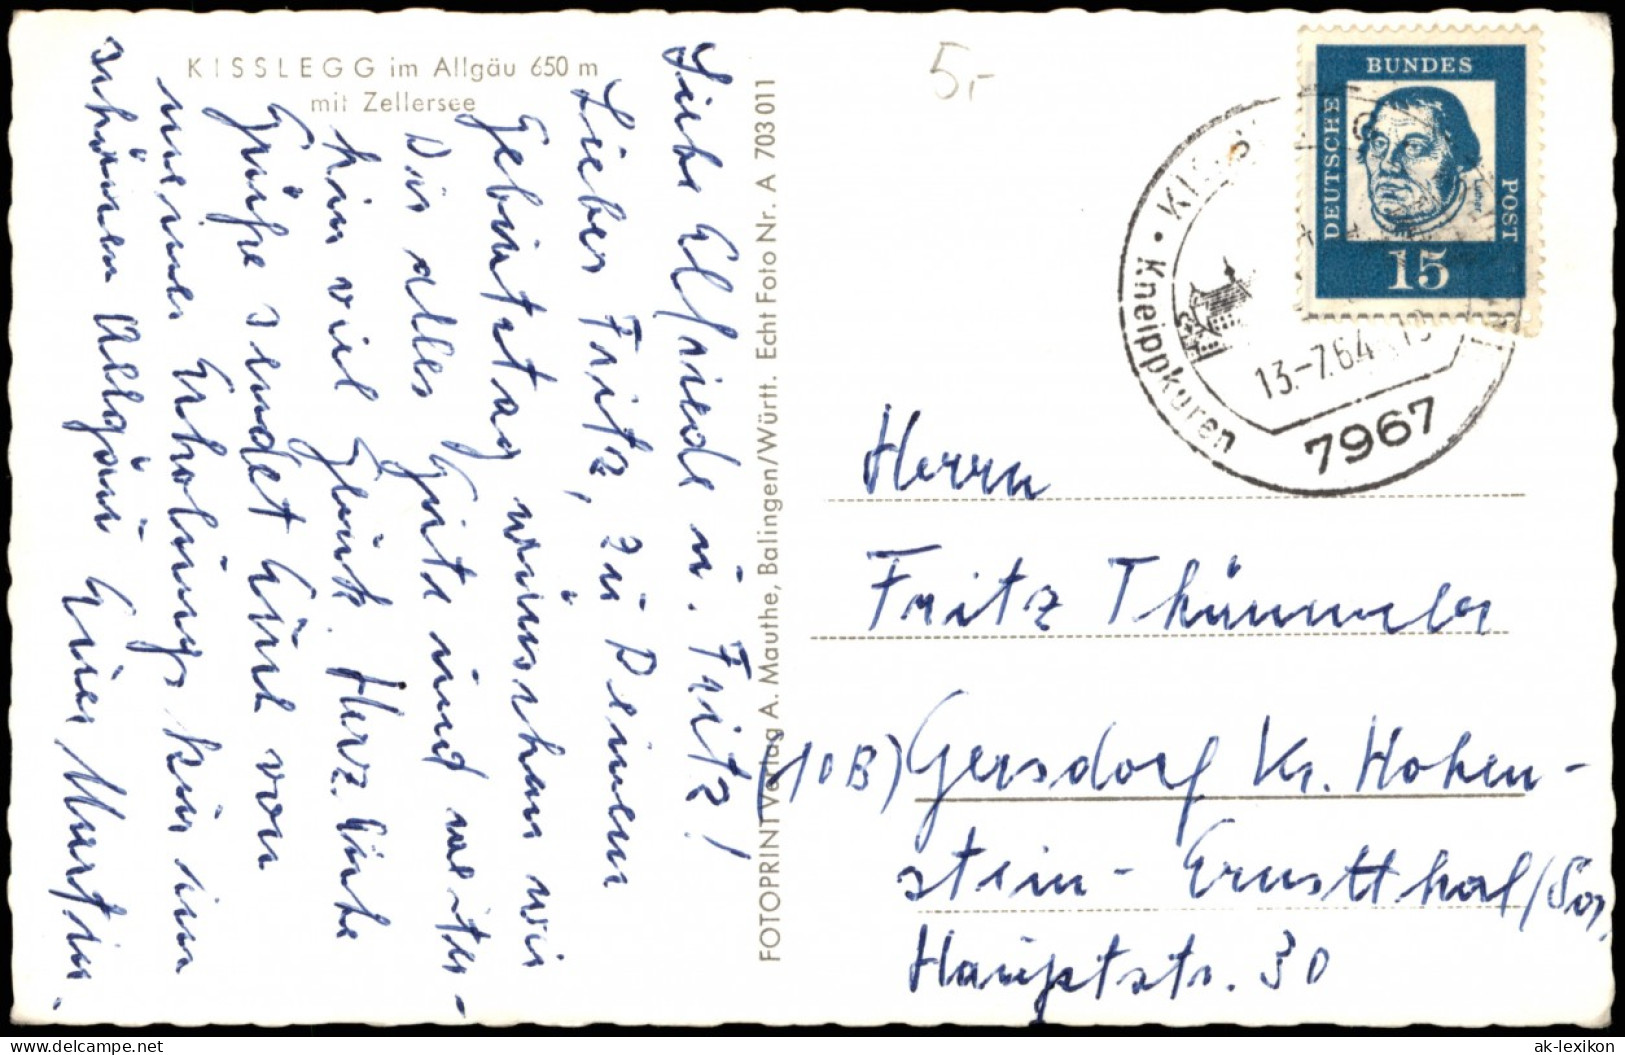 KISSLEGG im Allgäu 650 m
mit Zellersee
Liebe Elfriede u. Fritz!
Lieber Fritz, zu Deinem
Gebürtstag wünschen wir
Dir alles Gute und weiter-
hin viel Glück. Herz. liebe
Grüße sendet Eüch von
meiner Erholungskür im
schönen Allgäu Eüer Martin.
FOTOPRINT Verlag A. Mauthe, Balingen/Württ. Echt Foto Nr. A 703 011
5,-
DEUTSCHE
BUNDES
POST
Luther
15
Kneippkuren
13.-7.64
7967
Herrn
Fritz Thümmler
(10B) Gersdorf Kr. Hohen-
stein-Ernstthal/Sa.
Hauptstr. 30
delcampe.net
ak-lexikon